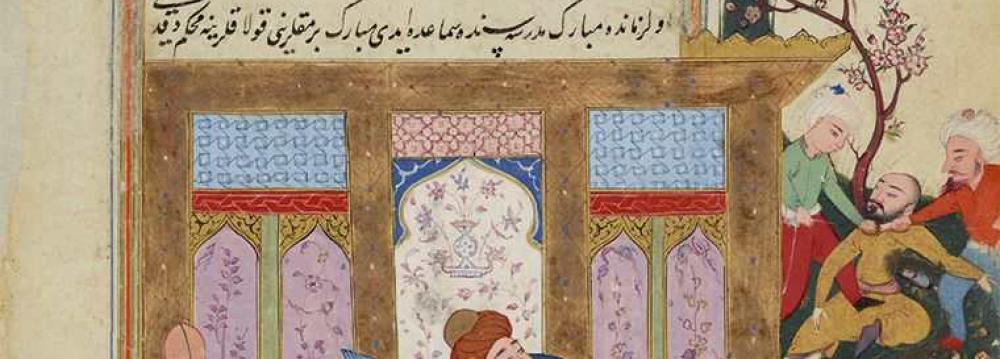 ولرزمانده مبارک مدرسه سنده سماعده ایدی مبارک بر مقلرینی قولا قلرینه محکم دیقدی